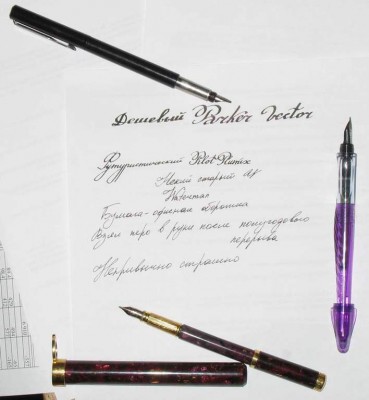 Дешевый Parker Vector
Футуристический Pilot Plumix
Некий старый
Бумага - офисная
Взял перо в руки после полугодового
перерыва
Непривычно страшно